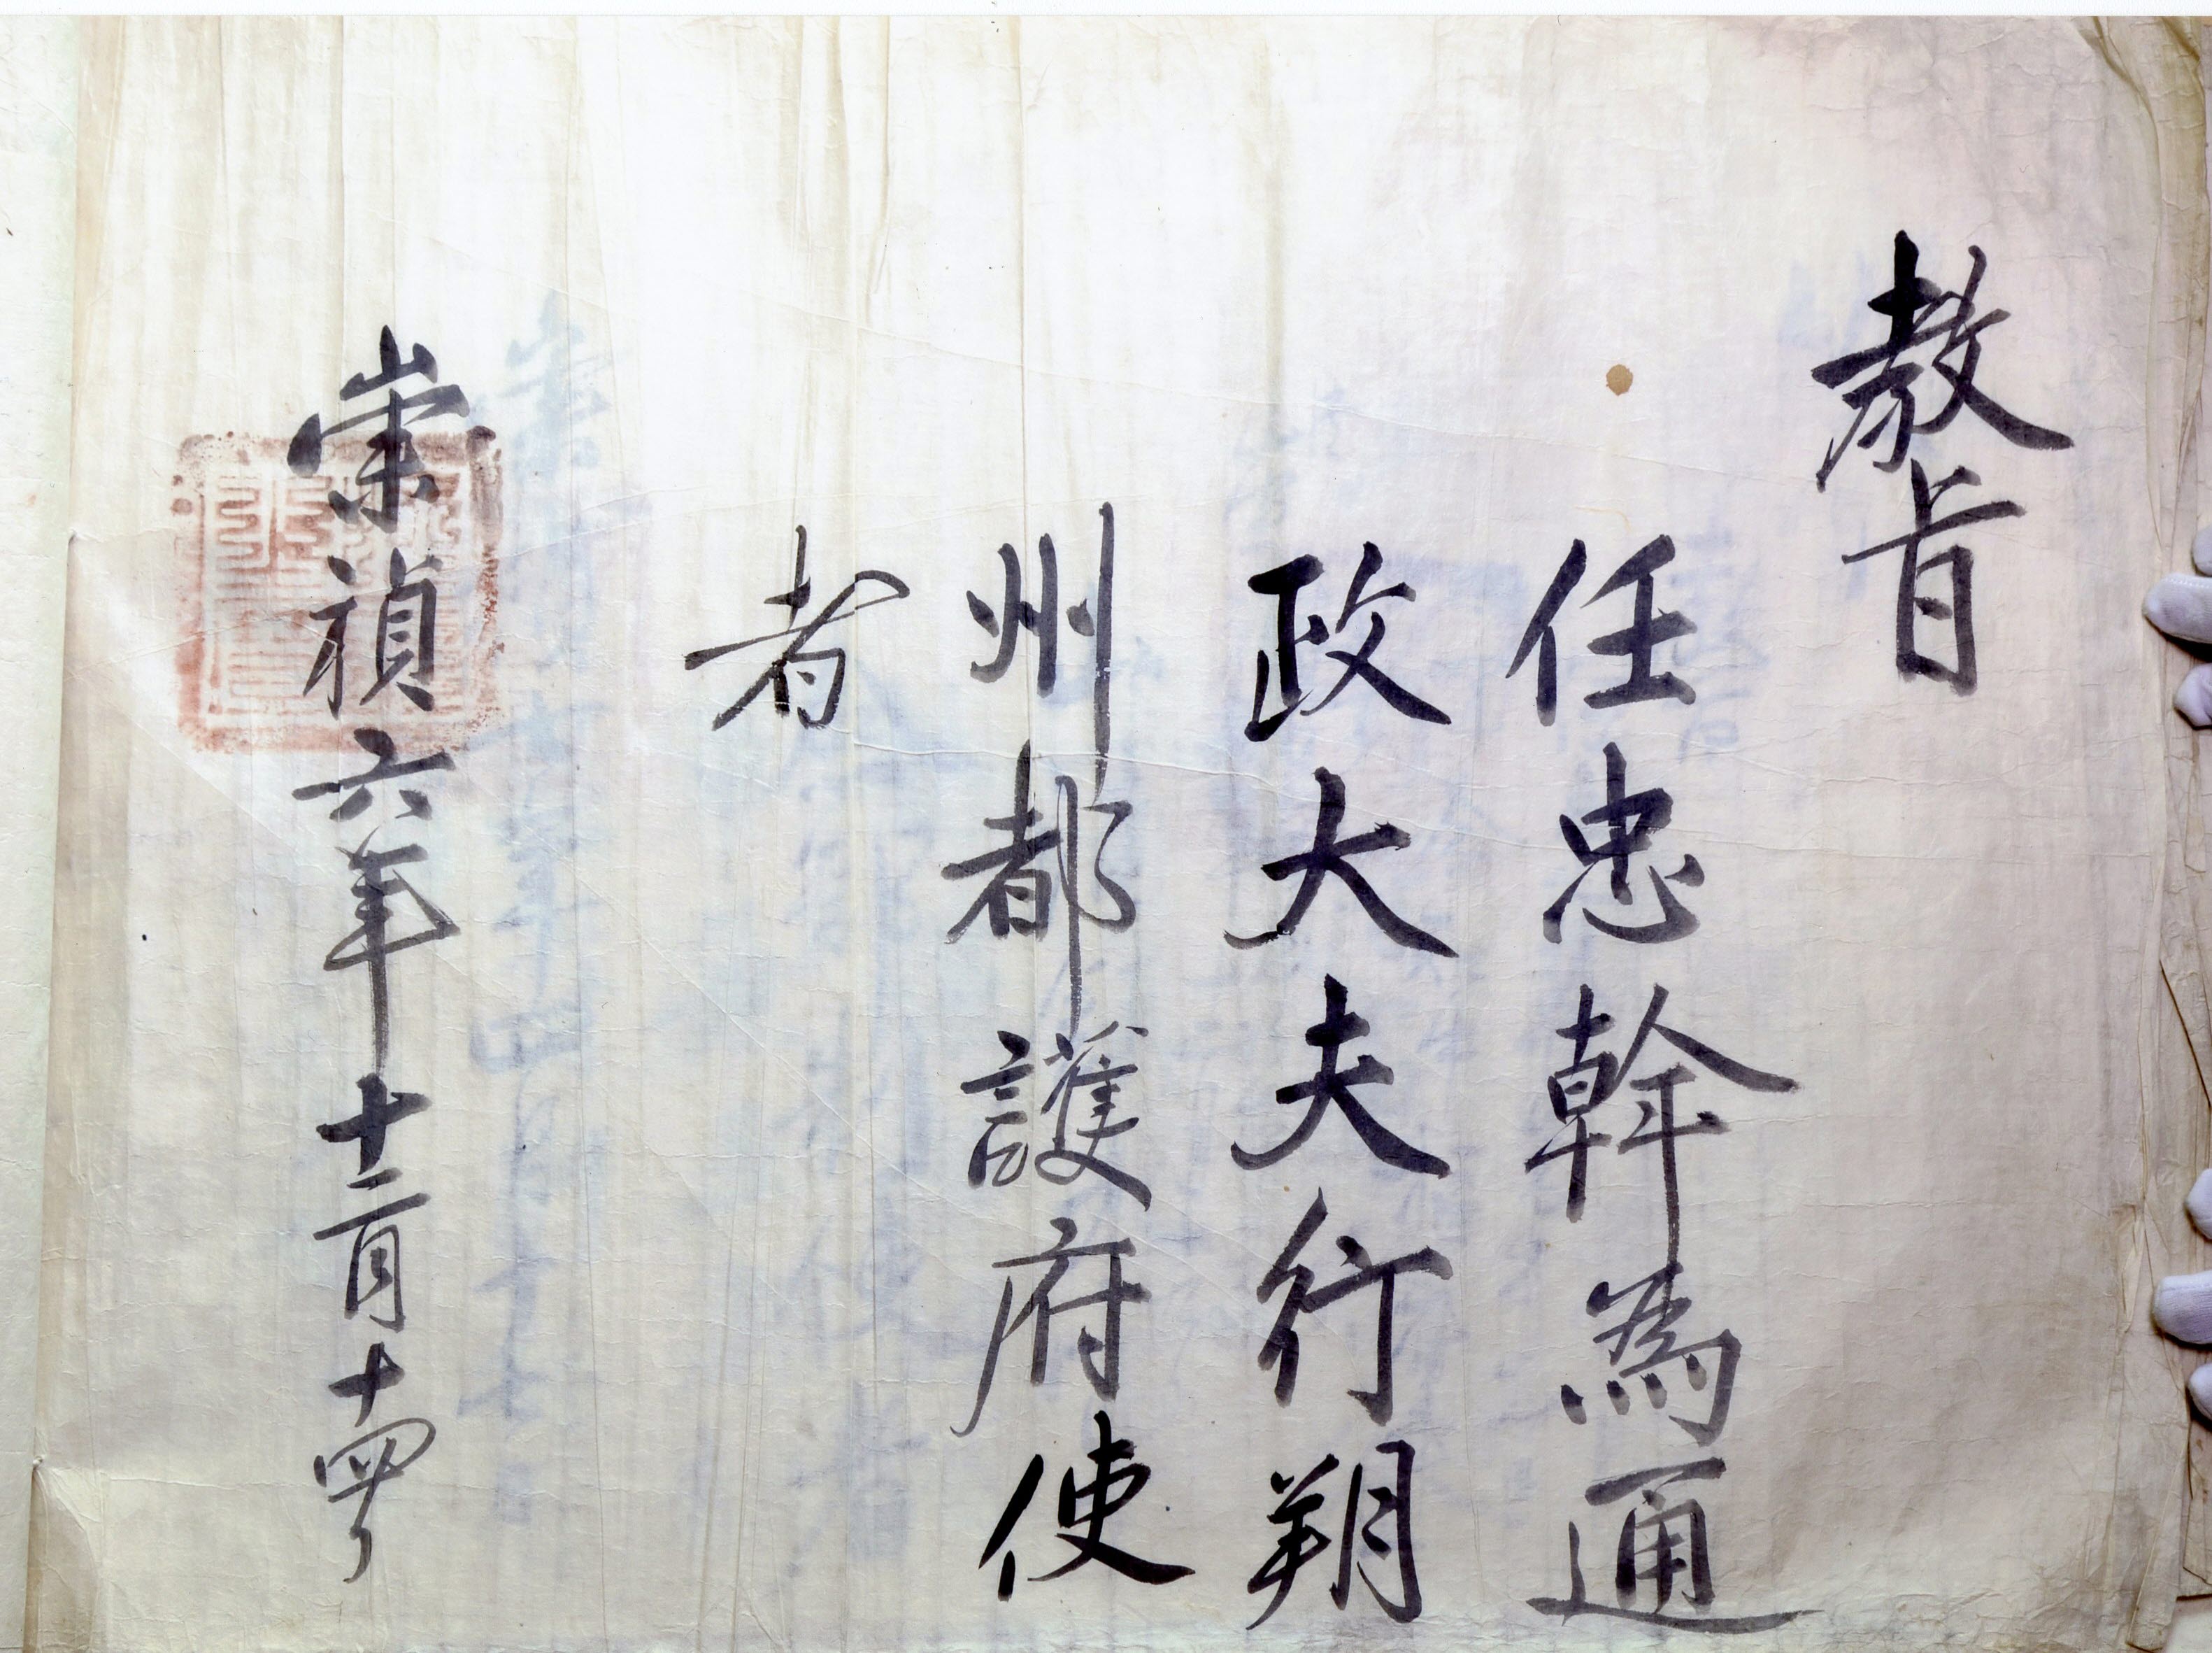 教旨
任忠幹為通
政大夫行朔
州都護府使
者
崇禎六年十二月十四日